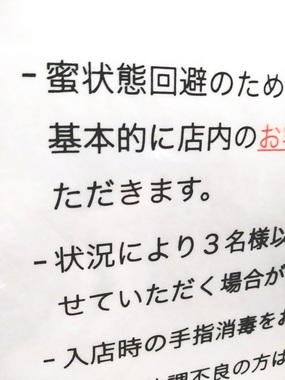 - 蜜状態回避のため
基本的に店内のお
ただきます。
- 状況により３名様以
せていただく場合が
- 入店時の手指消毒をお
調不良の方は